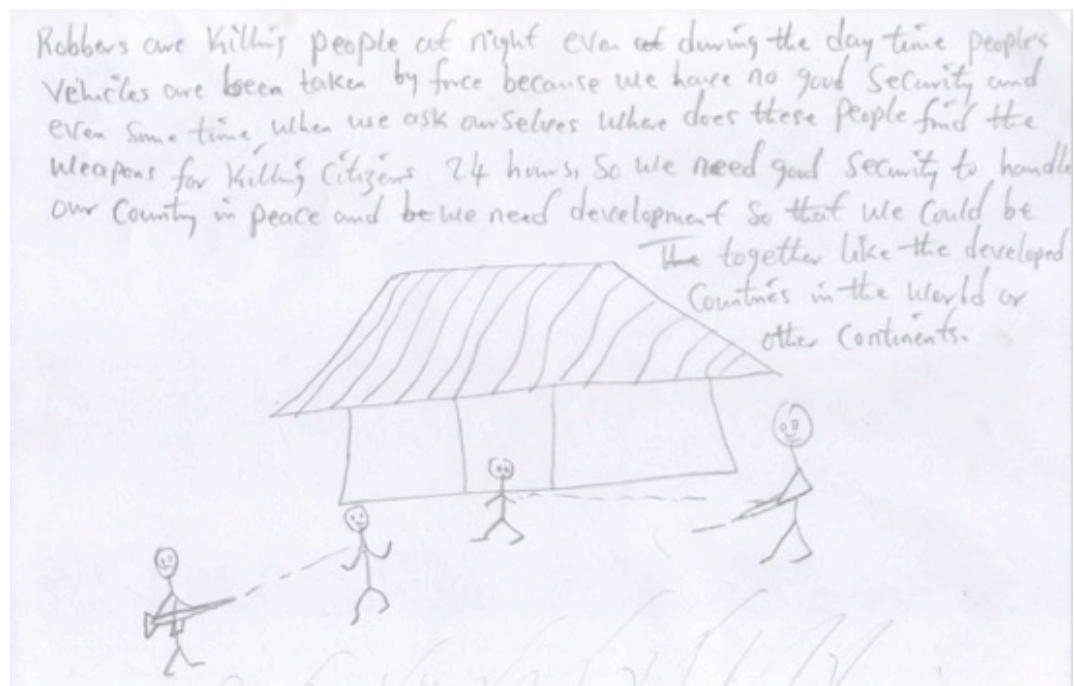 Robbers are killing people at night even at during the day time people's
vehicles are been taken by force because we have no good security and
even some time, when we ask ourselves where does these people find the
weapons for killing citizens 24 hours, so we need good security to handle
our country in peace and be we need development so that we could be
The together like the developed
countries in the world or
other continents.